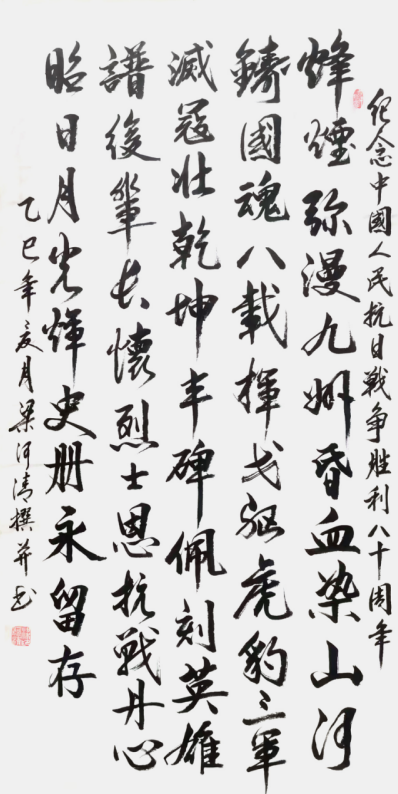 纪念中國人民抗日戰争胜利八十周年
烽煙弥漫九州昏血染山河
鑄國魂八載揮戈驱虎豹三軍
滅寇壮乾坤丰碑佩刻英雄
譜後輩长懷烈士恩抗戰丹心
昭日月光輝史册永留存
乙巳年夏月梁河清撰并书